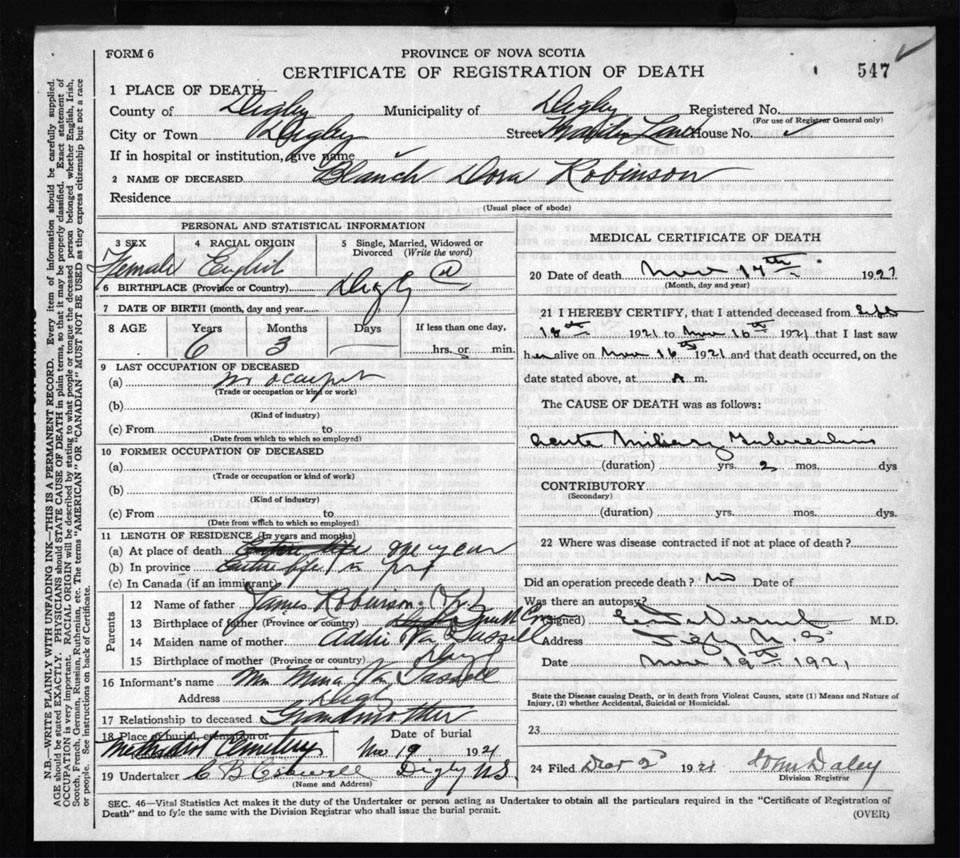 FORM 6
PROVINCE OF NOVA SCOTIA
CERTIFICATE OF REGISTRATION OF DEATH
547
1 PLACE OF DEATH
County of Digby Municipality of Digby Registered No.
(For use of Registrar General only)
City or Town Digby Street House No.
If in hospital or institution, give name
2 NAME OF DECEASED Blanch Dora Robinson
Residence
(Usual place of abode)
PERSONAL AND STATISTICAL INFORMATION
3 SEX
Female
4 RACIAL ORIGIN
English
5 Single, Married, Widowed or Divorced (Write the word)
6 BIRTHPLACE (Province or Country) Digby
7 DATE OF BIRTH (month, day and year)
8 AGE Years Months Days If less than one day,
6 3 hrs. or min.
9 LAST OCCUPATION OF DECEASED
(a) no occupat
(Trade or occupation or kind of work)
(b)
(Kind of industry)
(c) From to
(Date from which to which so employed)
10 FORMER OCCUPATION OF DECEASED
(a)
(Trade or occupation or kind of work)
(b)
(Kind of industry)
(c) From to
(Date from which to which so employed)
11 LENGTH OF RESIDENCE (In years and months)
(a) At place of death Entire life one year
(b) In province Entire life in
(c) In Canada (if an immigrant)
Parents
12 Name of father James Robinson
13 Birthplace of father (Province or country)
14 Maiden name of mother Addie Van Tassell
15 Birthplace of mother (Province or country) Digby
16 Informant's name Mrs Mina Van Tassell
Address Digby
17 Relationship to deceased Grandmother
18 Place of burial, cremation or Date of burial
Methodist Cemetery Nov 19 1921
19 Undertaker Digby N.S.
(Name and Address)
MEDICAL CERTIFICATE OF DEATH
20 Date of death Nov 17th 1921
(Month, day and year)
21 I HEREBY CERTIFY, that I attended deceased from Sept
18th 1921 to Nov 16th 1921 that I last saw
her alive on Nov 16th 1921 and that death occurred, on the
date stated above, at A m.
The CAUSE OF DEATH was as follows:
Acute Miliary Tuberculosis
(duration) yrs. 2 mos. dys
CONTRIBUTORY
(Secondary)
(duration) yrs. mos. dys.
22 Where was disease contracted if not at place of death?
Did an operation precede death? no Date of
Was there an autopsy?
(Signed) M.D.
Address Digby N.S
Date Nov 19th 1921
State the Disease causing Death, or in death from Violent Causes, state (1) Means and Nature of
Injury, (2) whether Accidental, Suicidal or Homicidal.
23
24 Filed 1921 John Daley
Division Registrar
SEC. 46—Vital Statistics Act makes it the duty of the Undertaker or person acting as Undertaker to obtain all the particulars required in the "Certificate of Registration of
Death" and to fyle the same with the Division Registrar who shall issue the burial permit.
(OVER)
N.B.—WRITE PLAINLY WITH UNFADING INK—THIS IS A PERMANENT RECORD. Every item of information should be carefully supplied.
AGE should be stated EXACTLY. PHYSICIANS should STATE CAUSE OF DEATH in plain terms, so that it may be properly classified. Exact statement of
OCCUPATION is very important. RACIAL ORIGIN will be described by stating to what people or tongue the deceased person belonged whether English, Irish,
Scotch, French, German, Russian, Ruthenian, etc. The terms "AMERICAN" OR "CANADIAN" MUST NOT BE USED as they express citizenship but not a race
or people. See instructions on back of Certificate.